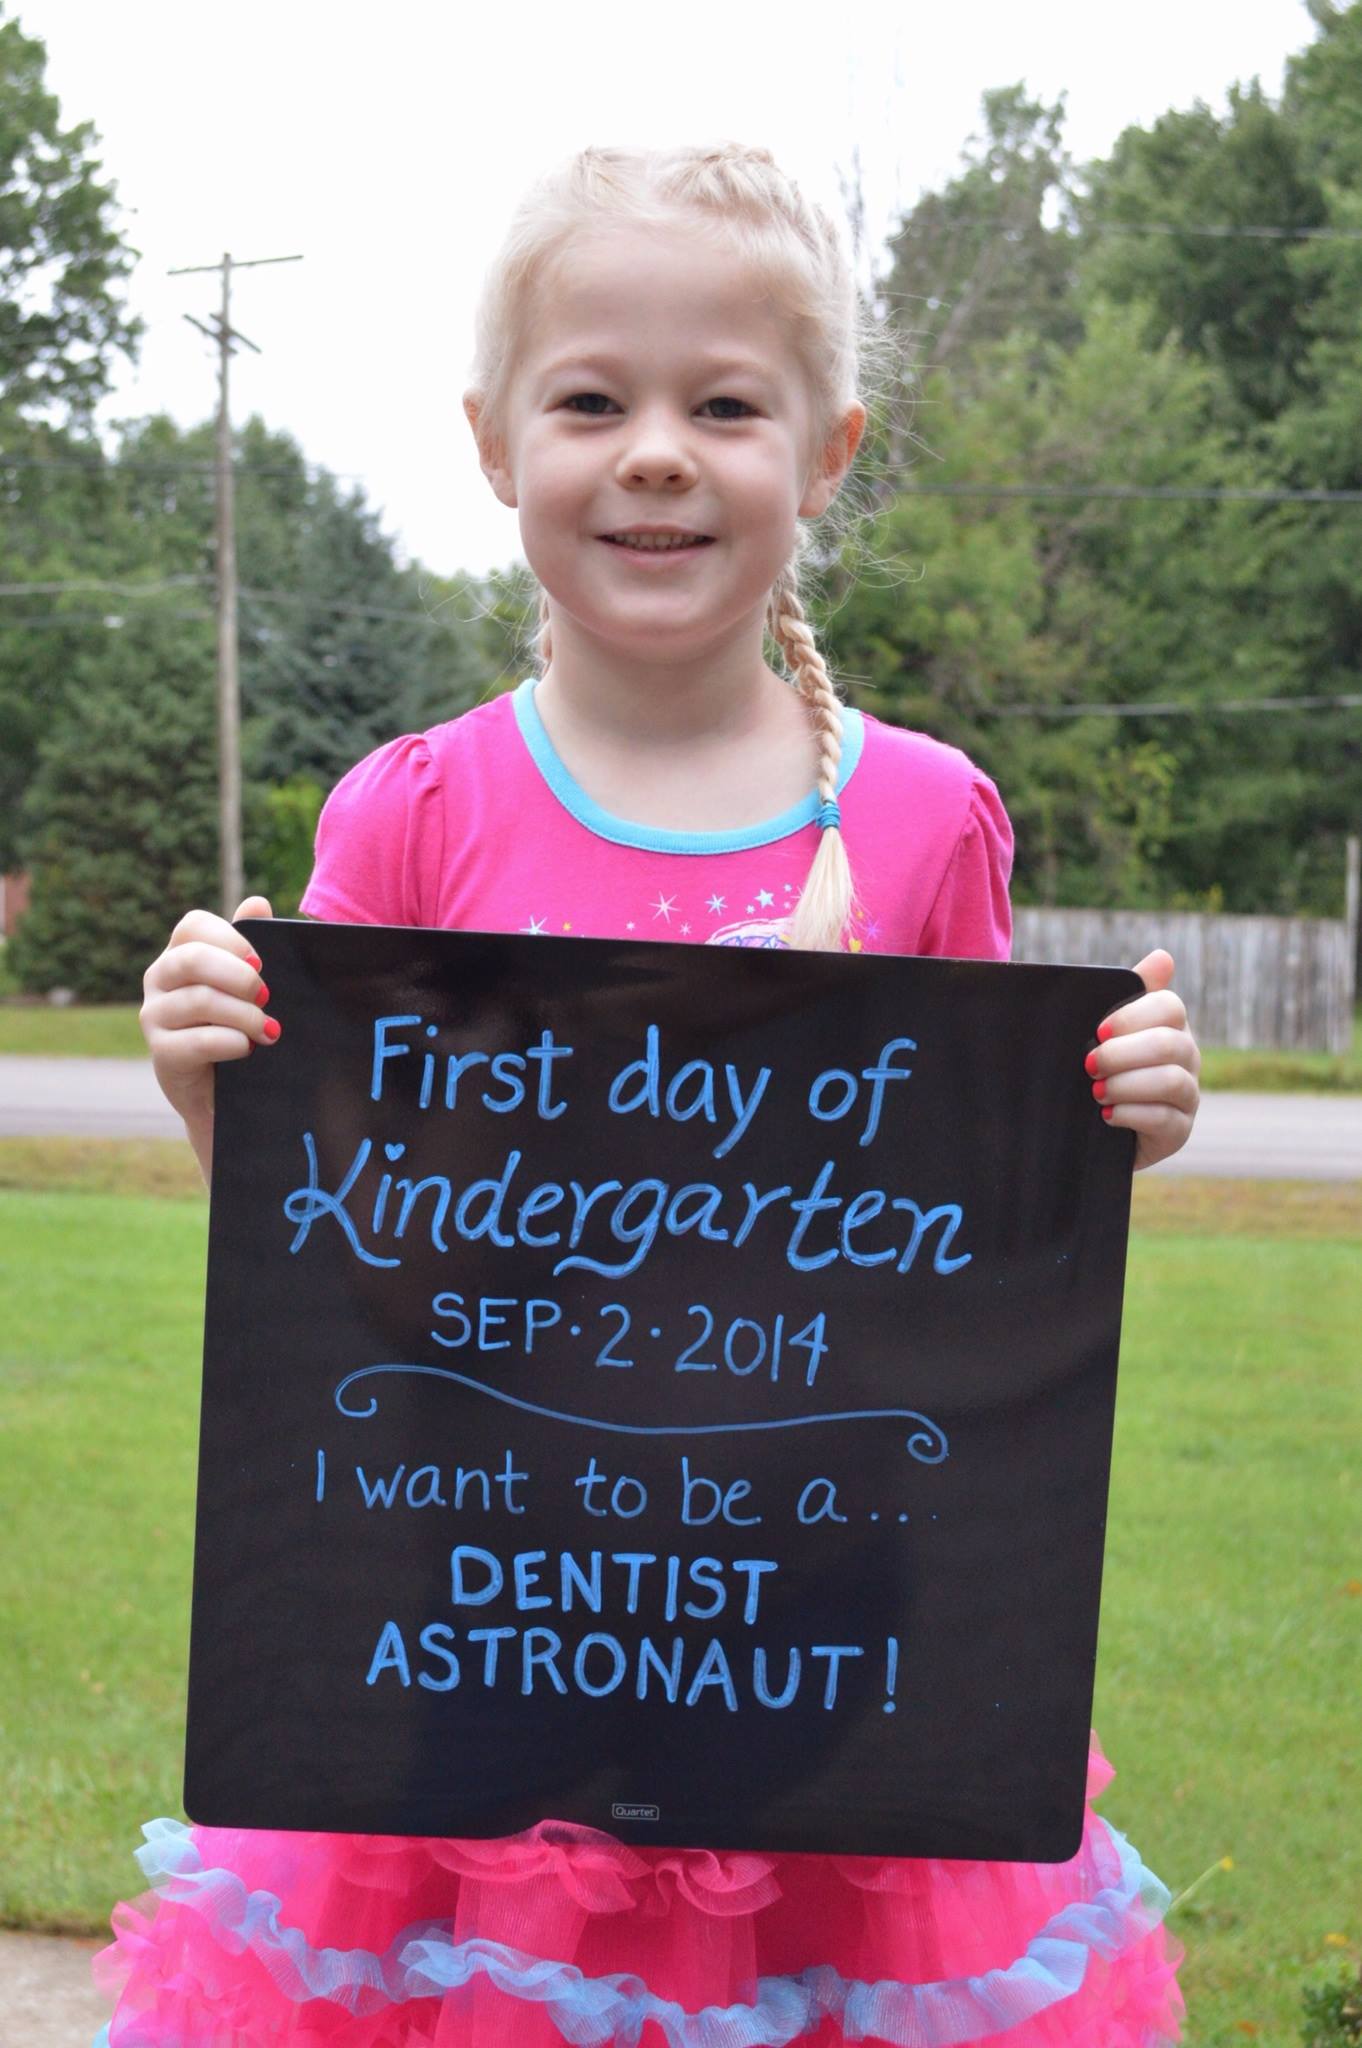 First day of
Kindergarten
SEP·2·2014
I want to be a...
DENTIST
ASTRONAUT!
Quartet